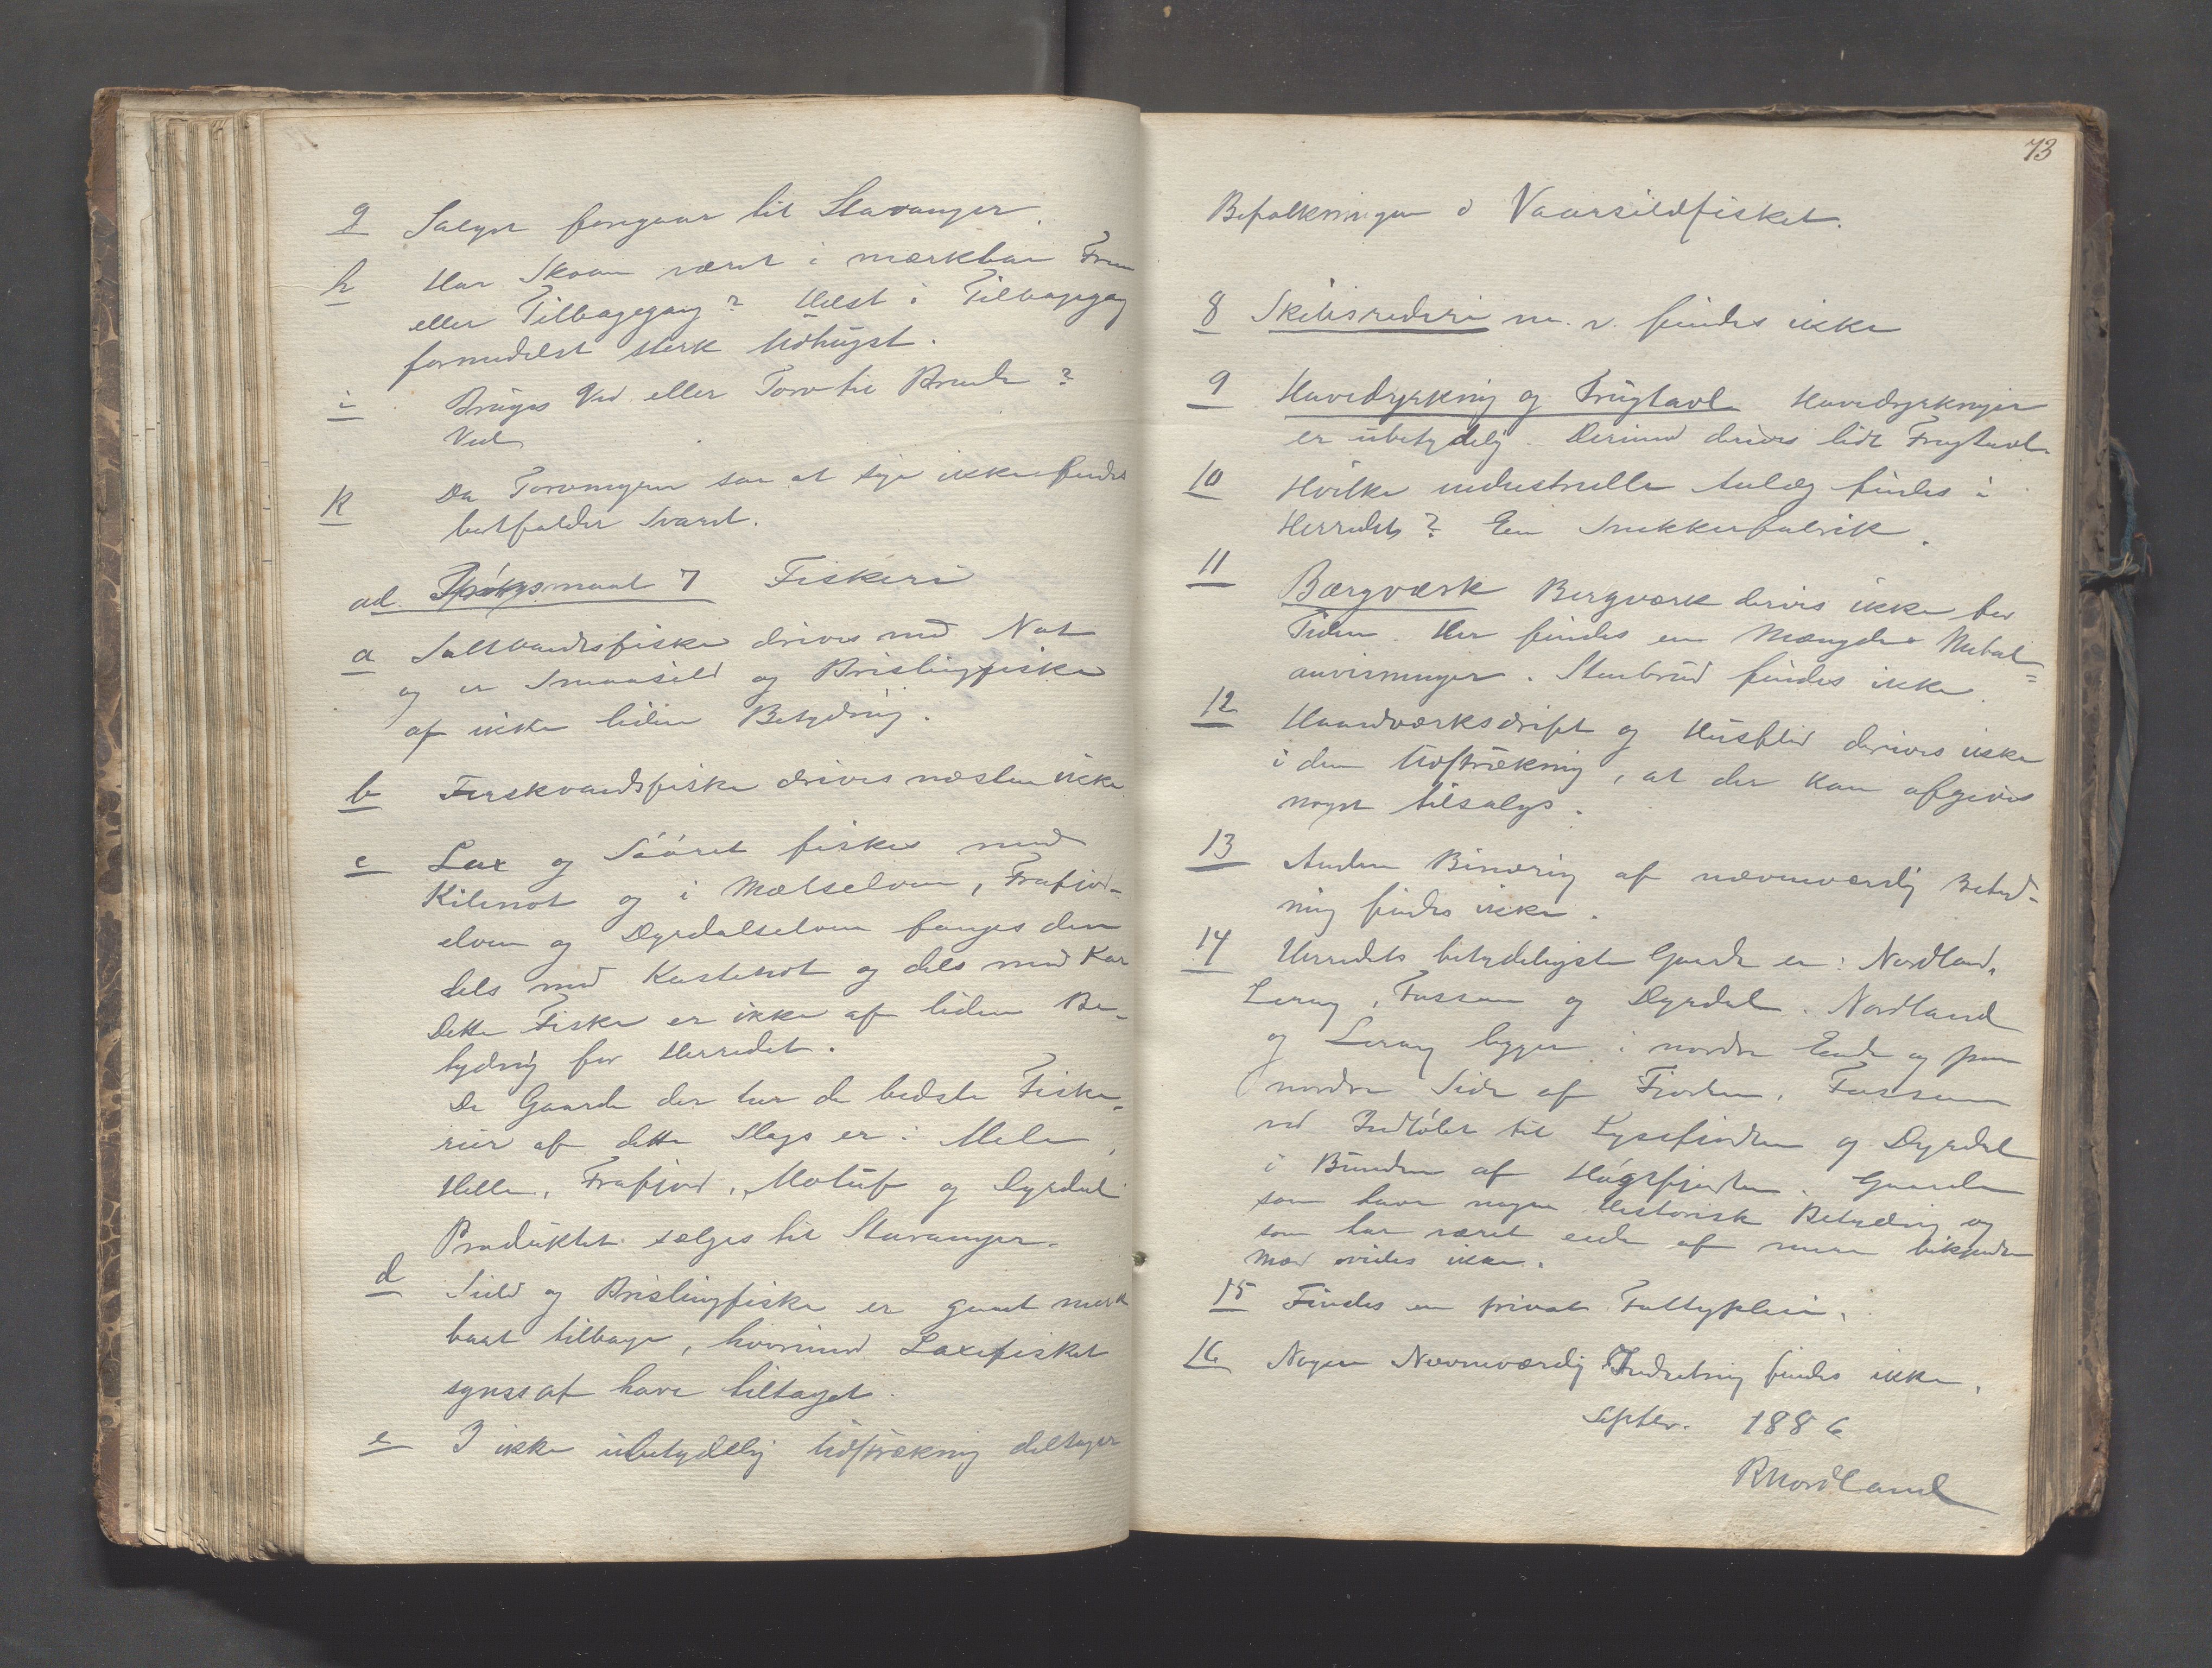 g Salget foregaar til Stavanger.
h Har Skoven været i mærkbar Frem
eller Tilbagegang? Helst i Tilbagegang
formedelst sterk Udhugst.
i Bruges Ved eller Torv til Brende?
Ved
k Da Torvmyrer saa at sige ikke findes
bortfalder Svaret.
ad. Spørgsmaal 7 Fiskeri
a Saltvandsfiske drives med Not
og er Smaasild og Brislingfiske
af ikke liden Betydning.
b Ferskvandsfiske drives næsten ikke.
c Lax og Søøret fiskes med
Kilenot og i Mælselven, Frafjord-
elven og Dyrdalselven fanges den
dels med Kastenot og dels med Kar
Dette Fiske er ikke af liden Be-
tydning for Herredet.
De Gaarde der har de bedste Fiske-
rier af dette Slags er: Mele,
Helle, Frafjord, Molauf og Dyrdal
Produktet sælges til Stavanger.
d Sild og Brislingfiske er gaaet mærk
baat tilbage, hvorimod Laxefisket
synes at have tiltaget.
e I ikke ubetydelig Udstrækning deltager
73
Befolkningen i Vaarsildfisket.
8 Skibsrederi m. v. findes ikke
9 Havedyrkning og Frugtavl Havedyrkningen
er ubetydelig. Derimod drives lidt Frugtavl.
10 Hvilke industrielle Anlæg findes i
Herredet? Ein Snekkerfabrik.
11 Bærgværk Bergværk drives ikke for
Tiden. Her findes en Mængde Metal=
anvisninger. Stenbrud findes ikke.
12 Haandværksdrift og Husflid drives ikke
i den Udstrækning, at der kan afgives
noget tilsalgs.
13 Anden Binæring af nævneværdig Betyd-
ning findes ikke.
14 Herredets betydeligste Gaarde er: Nordland,
Lerang, Fossan og Dyrdal. Nordland
og Lerang ligger i nordre Ende og paa
nordre Side af Fjorden. Fossan
ved Indløbet til Lysefjorden og Dyrdal
i Bunden af Høgsfjorden. Gaarde
som have nogen Historisk Betydning og
som har været eiede af mere bekjendte
Mænd vides ikke.
15 Findes en privat Fattigpleie.
16 Nogen Nævneværdig Indretning findes ikke.
Septbr. 1886
R Nordland